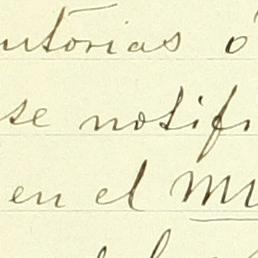 utorias ó
se notifi
en el Mu